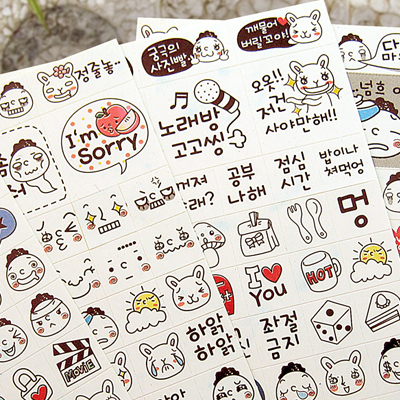 정줄놓..
I'm
Sorry
MOVIE
궁극의
사진빨
깨물어
버릴꼬야!
노래방
고고씽
오옷!!
저건
사야만해!!
공부
나해
점심
시간
밥이나
쳐먹어
멍
I ♥
You
HOT
하앍
하앍
좌절
금지